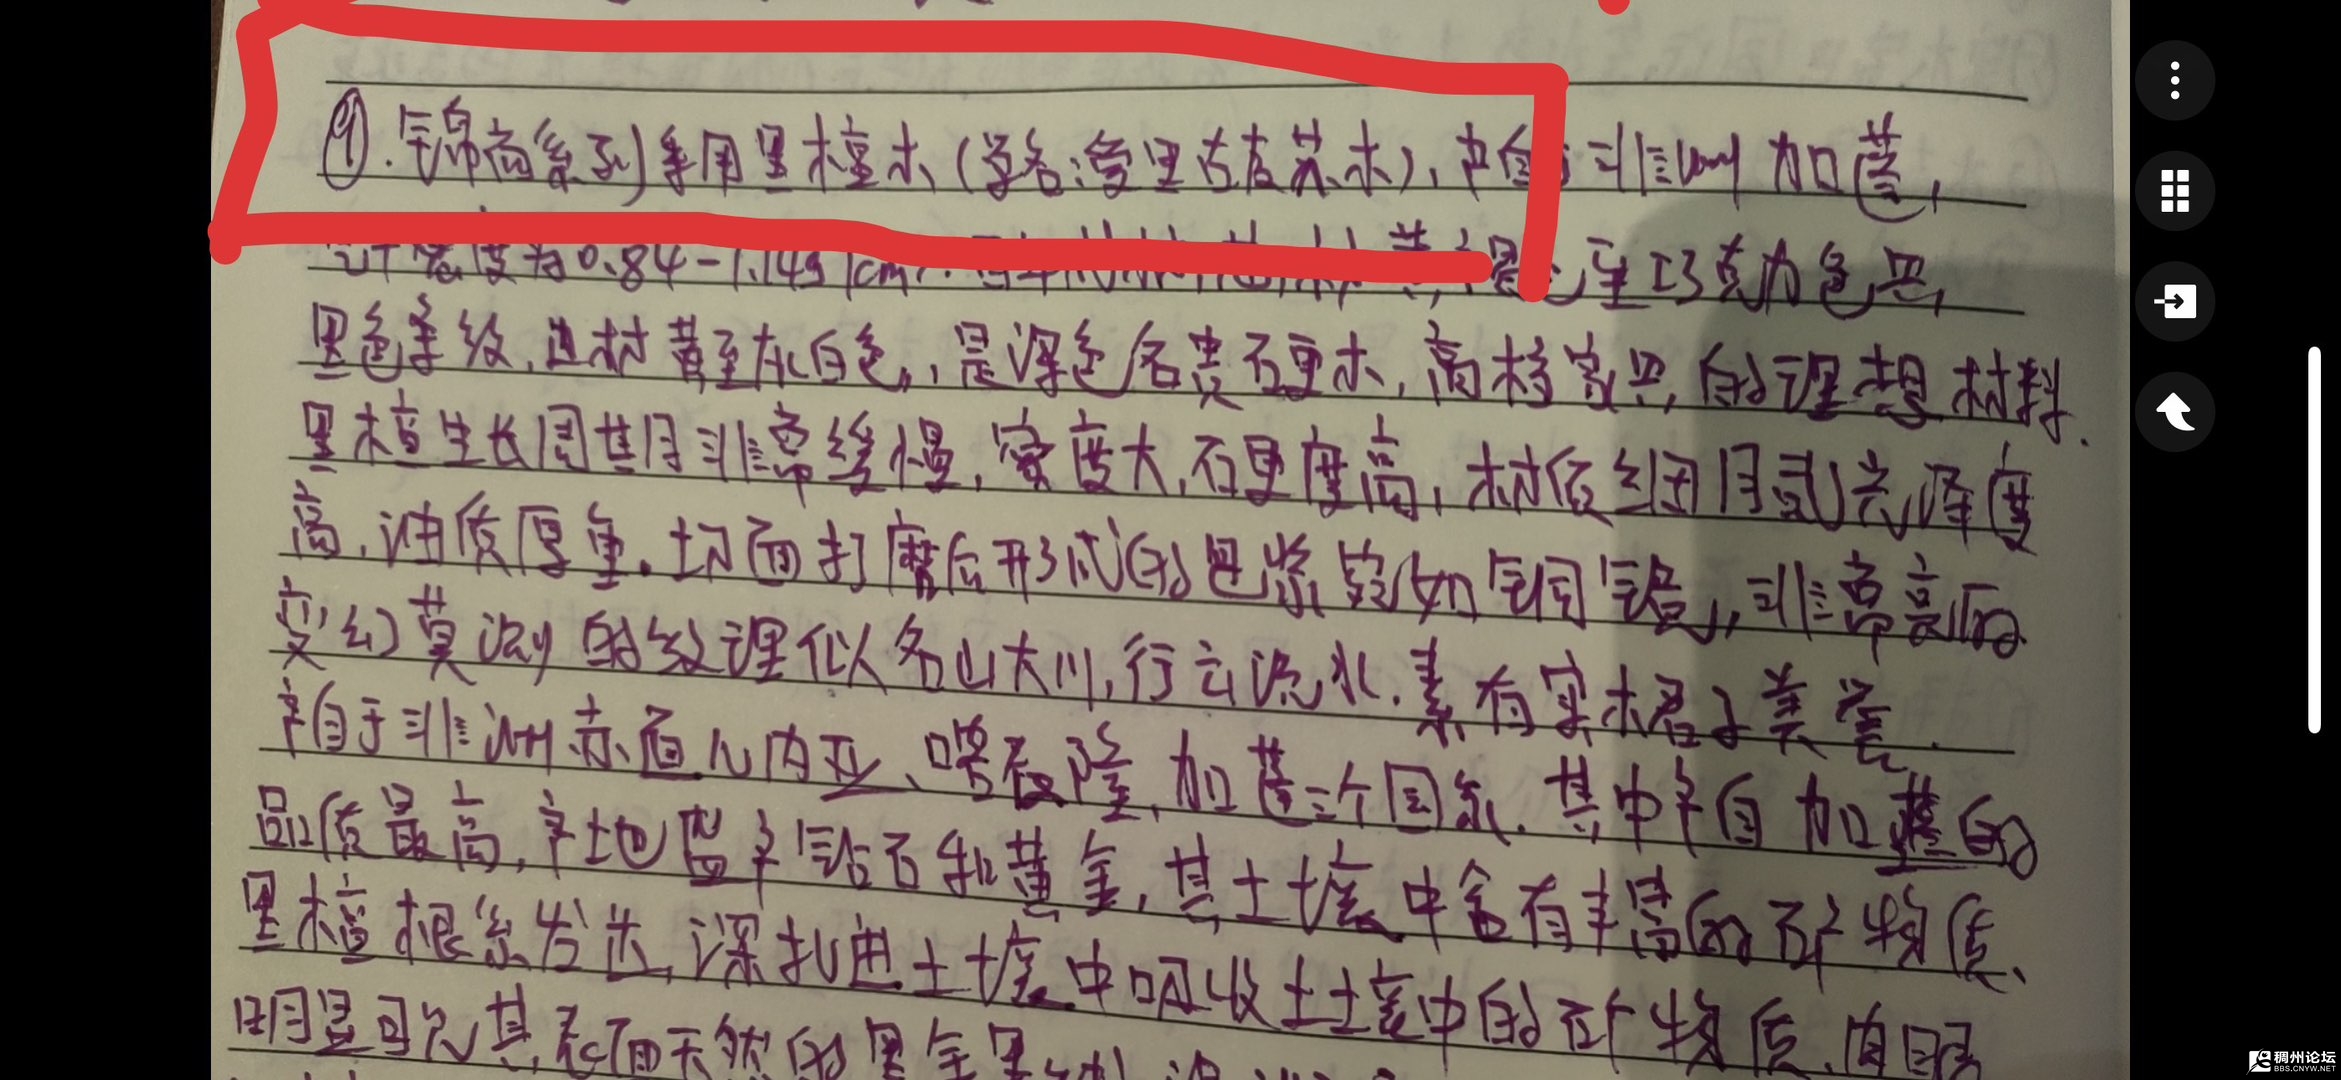 ⑨.锦尚系列采用黑檀木(学名:爱里古夷苏木),产自于非洲加蓬,
气干密度为0.84-1.14g/cm³.至巧克力色具,
黑色条纹,边材黄至灰白色,是深色名贵硬木,高档家具的理想材料.
黑檀生长周其月非常缓慢,密度大,硬度高,材质细腻光泽度
高,油质厚重.切面打磨后形成的色紫如铜,非常高的
变幻莫测的纹理似名山大川,行云流水.素有实木君子美誉.
产自于非洲赤道几内亚、喀麦隆,加蓬三个国家.其中产自加蓬的
品质最高,产地盛产钻石和黄金,其土壤中含有丰富的矿物质、
黑檀根系发达,深扎进土壤中吸收土壤中的矿物质,肉眼
明显可见其表面天然的黑金黑
稠州论坛
BBS.CNYW.NET